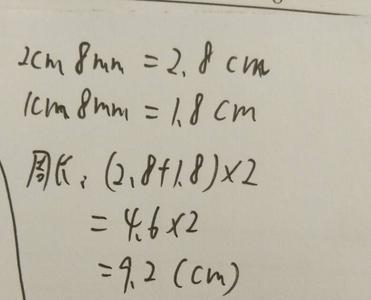 2cm 8mm = 2.8 cm
1cm 8mm = 1.8 cm
周长: (2.8+1.8)×2
= 4.6×2
= 9.2 (cm)